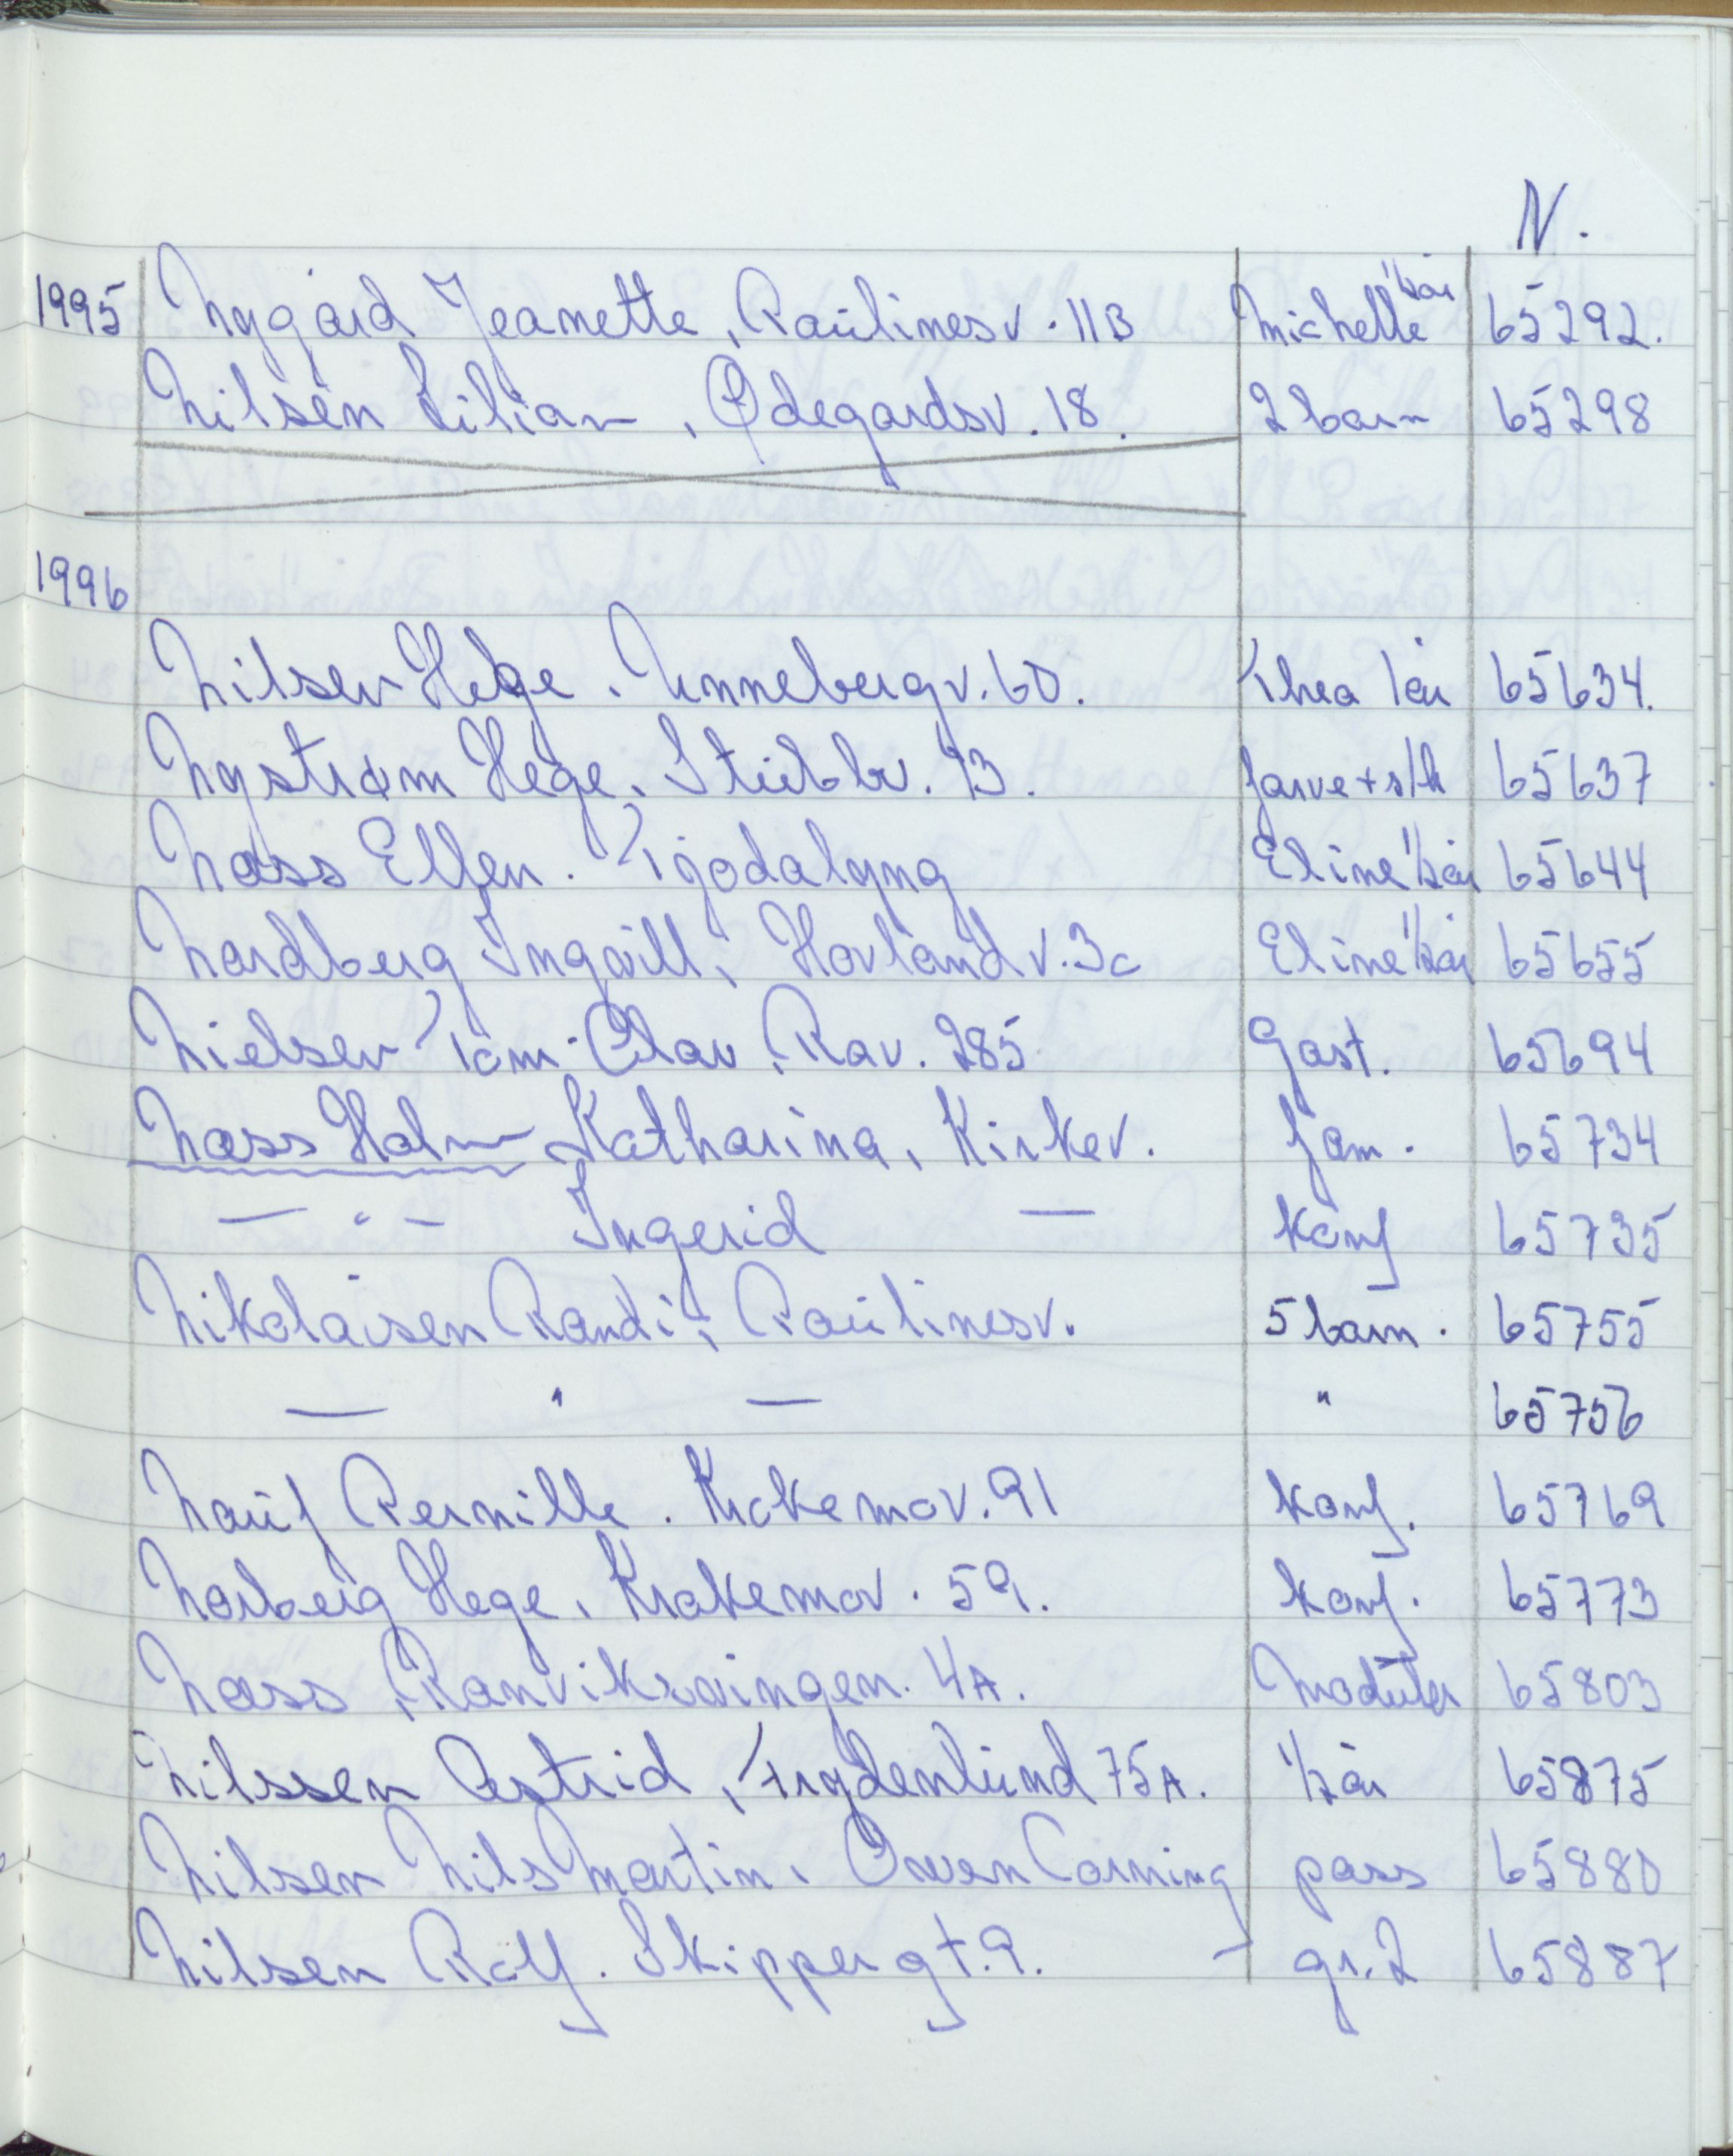 N.
1995 Nygård Jeanette, Paulinesv. 11B Michelle 1/2 år 65292.
Nilsen Lilian, Ødegardsv. 18. 2 barn 65298
1996
Nilsen Hege. Unnebergv. 60. Thea 1 år 65634.
Nystrøm Hege. Stubbv. 93. farve + s/h 65637
Næss Ellen. Tjodalyng Eline 1/2 år 65644
Nordberg Ingvill, Hovlandv. 3c Eline 1/2 år 65655
Nielsen Tom-Olav, Rav. 285 Gast. 65694
Næss Holm Katharina, Kirkev. fam. 65734
— " — Ingerid — konf 65735
Nikolaisen Randi, Paulinesv. 5 barn. 65755
— " — " 65756
Nauf Pernille. Krokemov. 91 konf. 65769
Norberg Hege, Krokemov. 59. konf. 65773
Næss, Ranviksvingen. 4A. Moduler 65803
Nilssen Astrid, Frydenlund 75A. 1/2 år 65875
Nilsen Nils Martin, Owen Corning pass 65880
Nilsen Rolf. Skippergt. 9. — gr. 2 65887